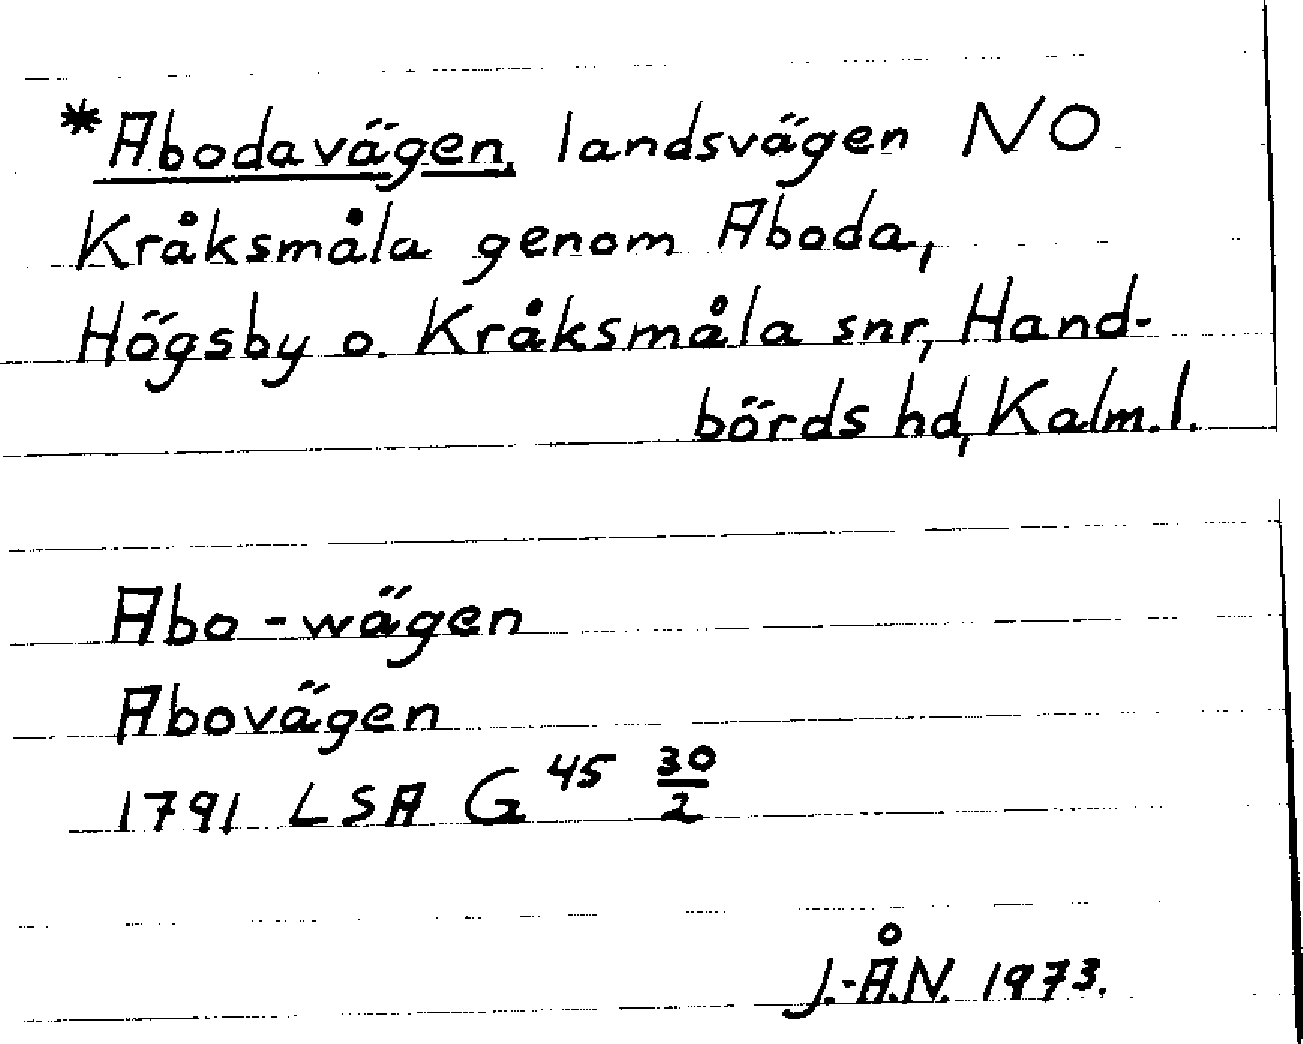 *Abodavägen, landsvägen NO
Kråksmåla genom Aboda,
Högsby o. Kråksmåla snr, Hand-
börds hd, Kalm. l.
Abo-wägen
Abovägen
1791 LSA G 45 30/2
J.-Å.N. 1973.